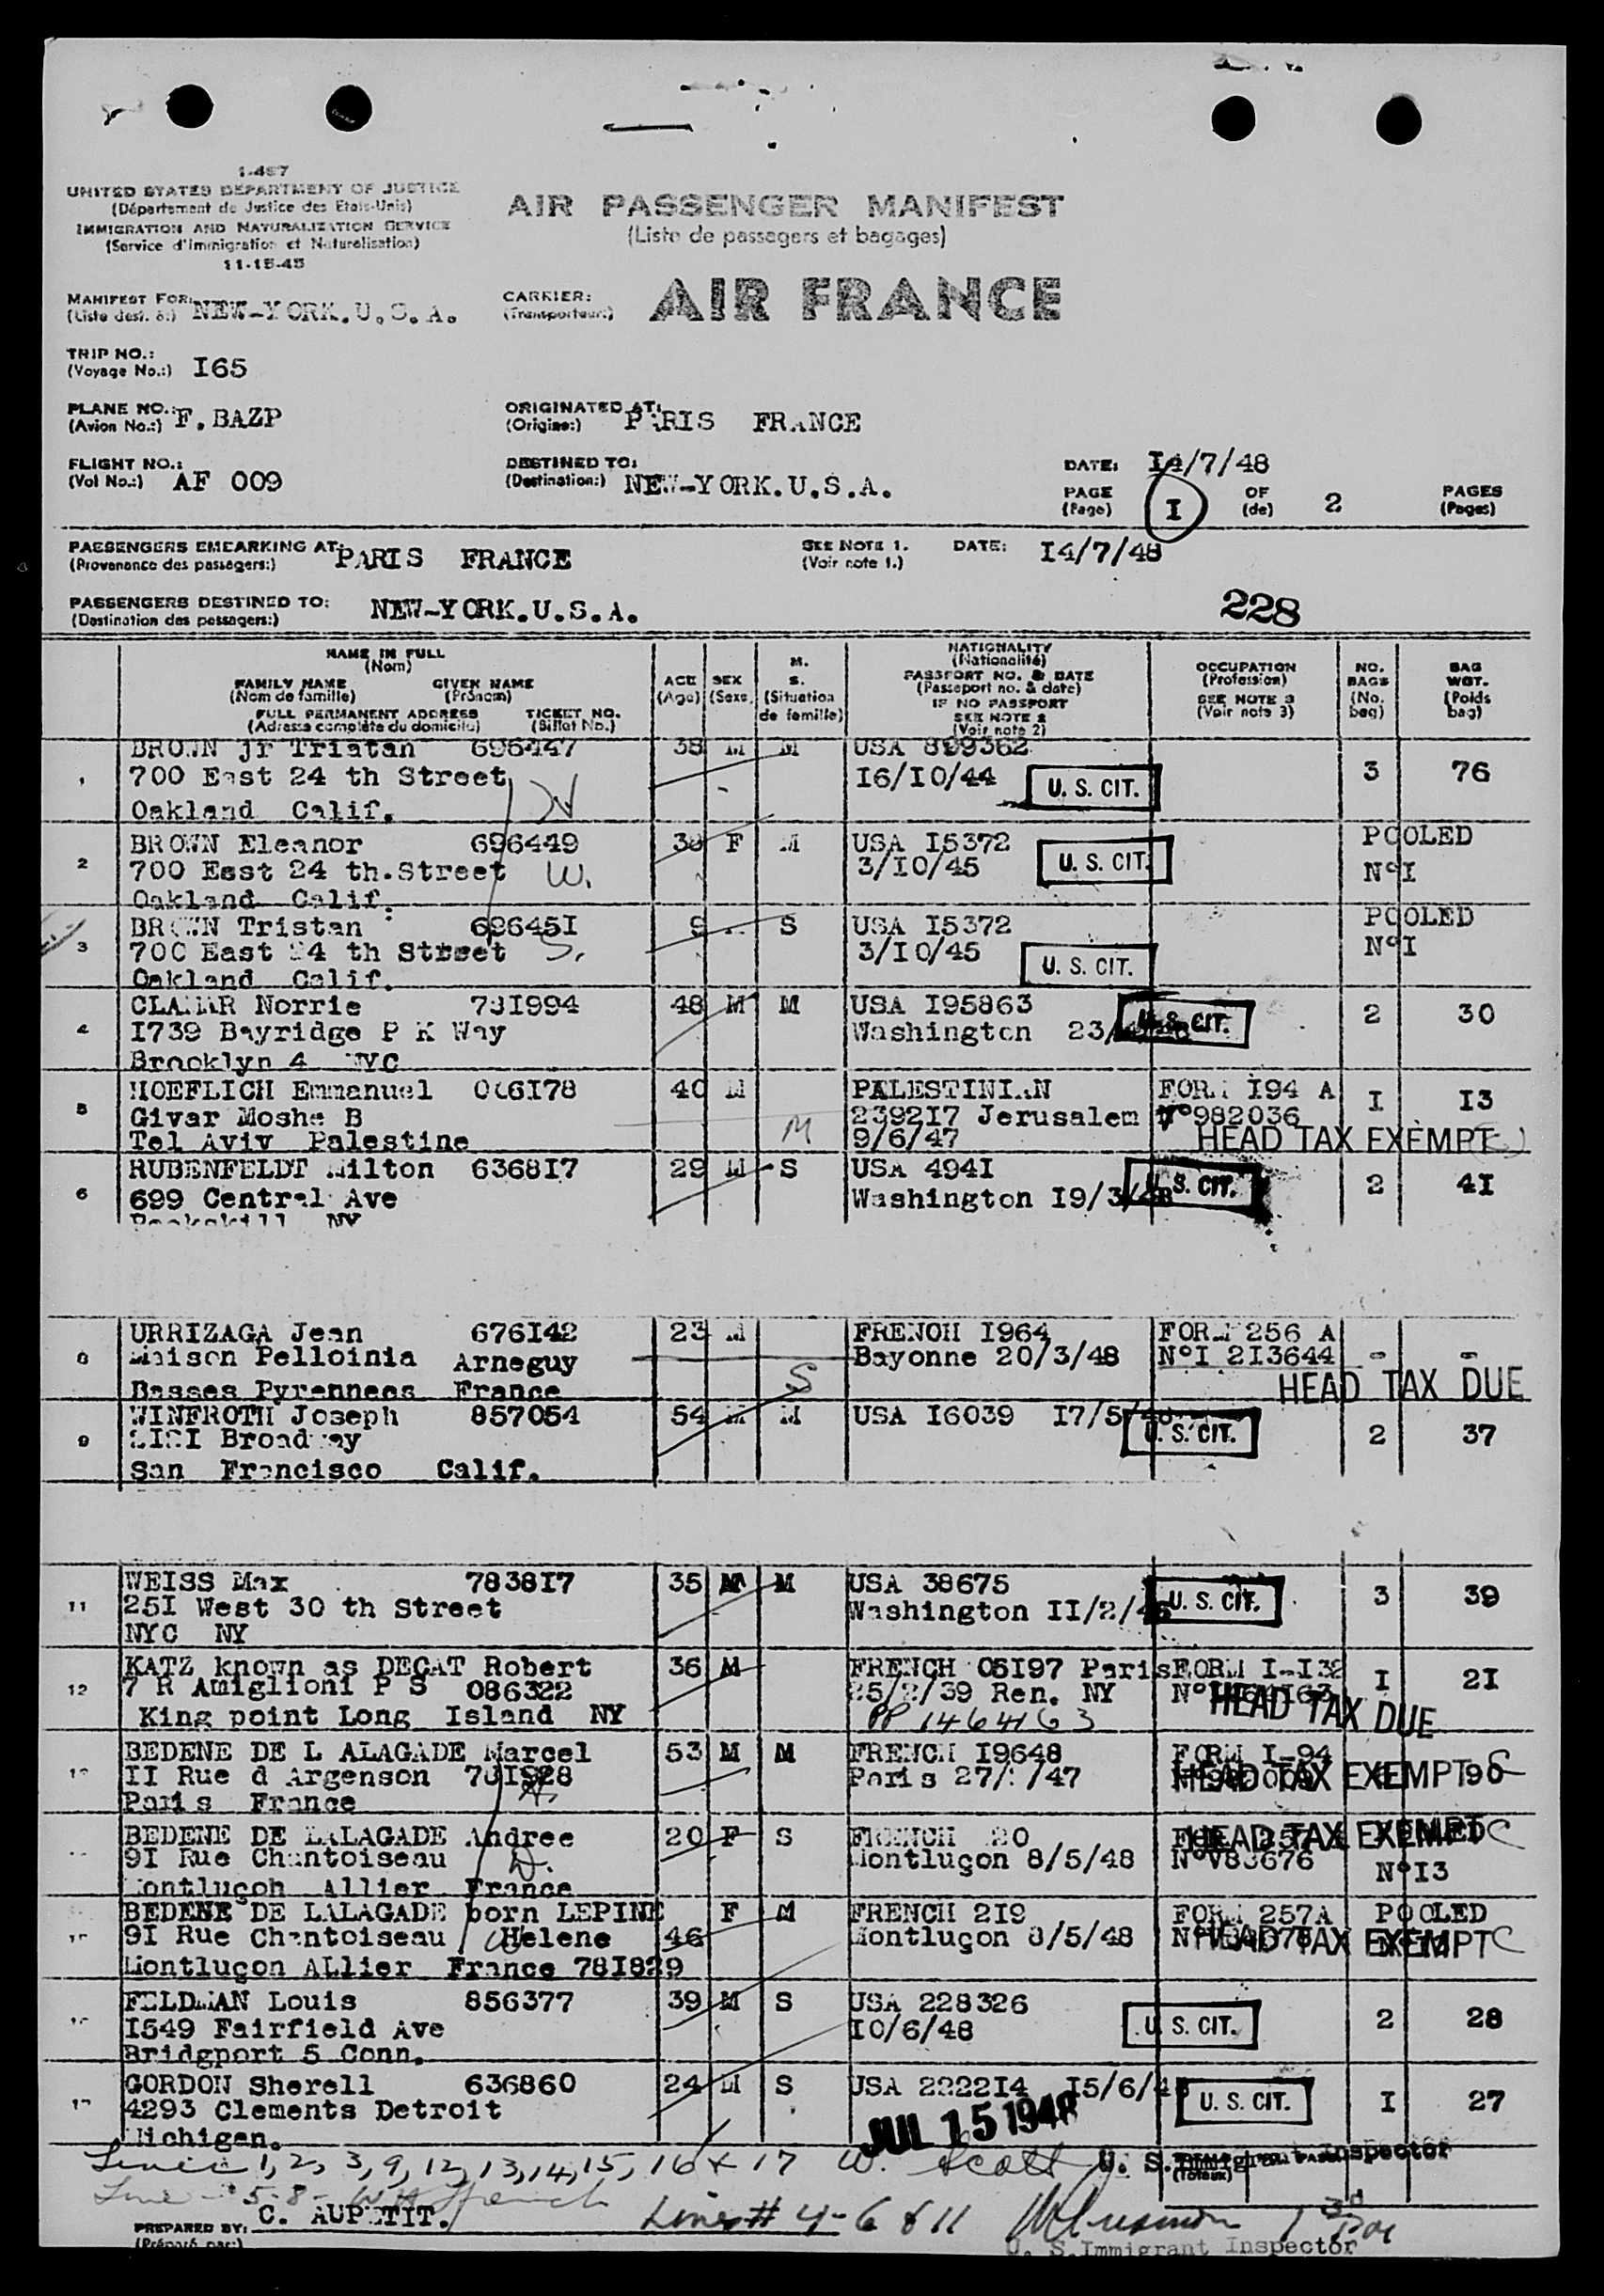 1-457
UNITED STATES DEPARTMENT OF JUSTICE
(Département de Justice des Etats-Unis)
IMMIGRATION AND NATURALIZATION SERVICE
(Service d'Immigration et Naturalisation)
11-15-45
AIR PASSENGER MANIFEST
(Liste de passagers et bagages)
MANIFEST FOR: NEW-YORK.U.S.A.
(Liste dest. à:)
CARRIER: AIR FRANCE
(Transporteur:)
TRIP NO.: I65
(Voyage No.:)
PLANE NO.: F.BAZP
(Avion No.:)
ORIGINATED AT: PARIS FRANCE
(Origine:)
FLIGHT NO.: AF 009
(Vol No.:)
DESTINED TO: NEW-YORK.U.S.A.
(Destination:)
DATE: I4/7/48
PAGE I OF 2 PAGES
(Page) (de) (Pages)
PASSENGERS EMBARKING AT: PARIS FRANCE
(Provenance des passagers:)
SEE NOTE 1.
(Voir note 1.)
DATE: I4/7/48
PASSENGERS DESTINED TO: NEW-YORK.U.S.A.
(Destination des passagers:)
228
NAME IN FULL
(Nom)
FAMILY NAME GIVEN NAME
(Nom de famille) (Prénom)
FULL PERMANENT ADDRESS TICKET NO.
(Adresse complète du domicile) (Billet No.)
AGE
(Age)
SEX
(Sexe)
M.
S.
(Situation
de famille)
NATIONALITY
(Nationalité)
PASSPORT NO. & DATE
(Passeport no. & date)
IF NO PASSPORT
SEE NOTE 2
(Voir note 2)
OCCUPATION
(Profession)
SEE NOTE 3
(Voir note 3)
NO.
BAGS
(No.
bag)
BAG
WGT.
(Poids
bag)
BROWN jr Tristan 696447 38 M M USA 899362
1 700 East 24 th Street I6/I0/44 U. S. CIT. 3 76
Oakland Calif.
BROWN Eleanor 696449 38 F M USA I5372 POOLED
2 700 East 24 th.Street W. 3/I0/45 U. S. CIT. N°I
Oakland Calif.
BROWN Tristan 69645I 9 S USA I5372 POOLED
3 700 East 24 th Street S. 3/I0/45 U. S. CIT. N°I
Oakland Calif.
Norrie 78I994 48 M M USA I95863 2 30
4 I739 Bayridge P K Way Washington 23/ U. S. CIT.
Brooklyn 4 NYC
HOEFLICH Emmanuel 066I78 40 M PALESTINIAN FORM I94 A I I3
5 Givar Moshe B M 2392I7 Jerusalem N°982036
Tel Aviv Palestine 9/6/47 HEAD TAX EXEMPT
RUBENFELDT Milton 6368I7 29 M S USA 494I U. S. CIT. 2 4I
6 699 Central Ave Washington I9/3/48
Peekskill NY
URRIZAGA Jean 676I42 23 M FRENCH I964 FORM 256 A
8 Maison Pelloinia Arneguy S Bayonne 20/3/48 N°I 2I3644 - -
Basses Pyrennees France HEAD TAX DUE
WINFROTH Joseph 857054 54 M M USA I6039 I7/5/48 U. S. CIT. 2 37
9 Broadway
San Francisco Calif.
WEISS Max 7838I7 35 M M USA 38675 U. S. CIT. 3 39
11 25I West 30 th Street Washington II/2/
NYC NY
KATZ known as DECAT Robert 36 M FRENCH 05I97 Paris FORM I-I32 I 2I
12 7 R Amiglioni P S 086322 25/2/39 Ren. NY HEAD TAX DUE
King point Long Island NY PP 1464163
BEDENE DE L ALAGADE Marcel 53 M M FRENCH I9648 FORM I-94
13 II Rue d Argenson Paris 27/ /47 HEAD TAX EXEMPT
Paris France
BEDENE DE LALAGADE Andree 20 F S FRENCH HEAD TAX EXEMPT
9I Rue Chantoiseau D. Montluçon 8/5/48 N°V83676 N°I3
Montluçon Allier France
BEDENE DE LALAGADE born LEPINE F M FRENCH 2I9 FORM 257A POOLED
9I Rue Chantoiseau Helene 46 Montluçon 8/5/48 HEAD TAX EXEMPT
Montluçon ALlier France 78I829
FELDMAN Louis 856377 39 M S USA 228326 2 28
I549 Fairfield Ave I0/6/48 U. S. CIT.
Bridgport 5 Conn.
GORDON Sherell 636860 24 M S USA 2222I4 I5/6/48 U. S. CIT. I 27
17 4293 Clements Detroit
Michigan.
JUL 15 1948
Lines 1, 2, 3, 9, 12, 13, 14, 15, 16 & 17 W. Scott U. S. Immigrant Inspector
Line - 5-8-
PREPARED BY: C. AUPETIT.
(Préparé par:)
Lines # 4-6 & 11
U. S. Immigrant Inspector